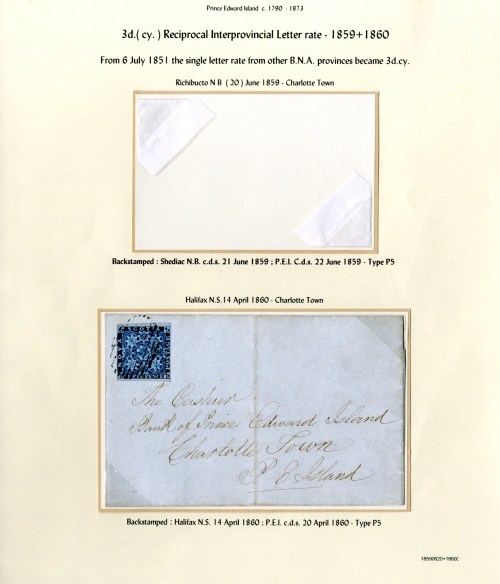 Prince Edward Island c. 1790 - 1873
3d.( cy. ) Reciprocal Interprovincial Letter rate - 1859+1860
From 6 July 1851 the single letter rate from other B.N.A. provinces became 3d.cy.
Richibucto N B ( 20 ) June 1859 - Charlotte Town
Backstamped : Shediac N.B. c.d.s. 21 June 1859 ; P.E.I. C.d.s. 22 June 1859 - Type P5
Halifax N.S. 14 April 1860 - Charlotte Town
SCOTIA
The Cashier
Bank of Prince Edward Island
Charlotte Town
P E Island
Backstamped : Halifax N.S. 14 April 1860 ; P.E.I. c.d.s. 20 April 1860 - Type P5
18590620+1860